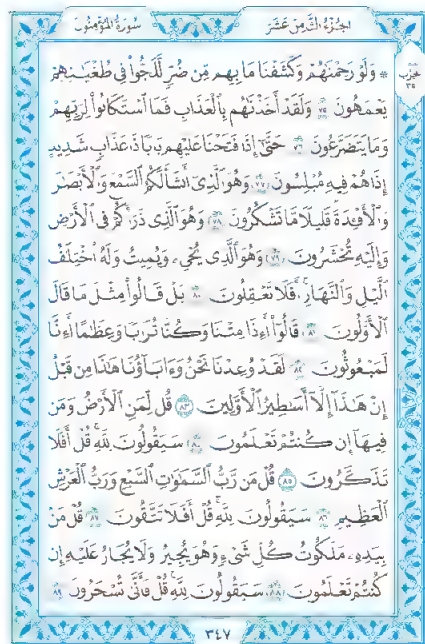 سُورَةُ المُؤۡمِنُونَ
الجُزۡءُ الثَّامِنَ عَشَرَ
حزب
٣٥
۞ وَلَوۡ رَحِمۡنَٰهُمۡ وَكَشَفۡنَا مَا بِهِم مِّن ضُرّٖ لَّلَجُّواْ فِي طُغۡيَٰنِهِمۡ
يَعۡمَهُونَ ٧٥ وَلَقَدۡ أَخَذۡنَٰهُم بِٱلۡعَذَابِ فَمَا ٱسۡتَكَانُواْ لِرَبِّهِمۡ
وَمَا يَتَضَرَّعُونَ ٧٦ حَتَّىٰٓ إِذَا فَتَحۡنَا عَلَيۡهِم بَابٗا ذَا عَذَابٖ شَدِيدٍ
إِذَا هُمۡ فِيهِ مُبۡلِسُونَ ٧٧ وَهُوَ ٱلَّذِيٓ أَنشَأَ لَكُمُ ٱلسَّمۡعَ وَٱلۡأَبۡصَٰرَ
وَٱلۡأَفۡـِٔدَةَۚ قَلِيلٗا مَّا تَشۡكُرُونَ ٧٨ وَهُوَ ٱلَّذِي ذَرَأَكُمۡ فِي ٱلۡأَرۡضِ
وَإِلَيۡهِ تُحۡشَرُونَ ٧٩ وَهُوَ ٱلَّذِي يُحۡيِۦ وَيُمِيتُ وَلَهُ ٱخۡتِلَٰفُ
ٱلَّيۡلِ وَٱلنَّهَارِۚ أَفَلَا تَعۡقِلُونَ ٨٠ بَلۡ قَالُواْ مِثۡلَ مَا قَالَ
ٱلۡأَوَّلُونَ ٨١ قَالُوٓاْ أَءِذَا مِتۡنَا وَكُنَّا تُرَابٗا وَعِظَٰمًا أَءِنَّا
لَمَبۡعُوثُونَ ٨٢ لَقَدۡ وُعِدۡنَا نَحۡنُ وَءَابَآؤُنَا هَٰذَا مِن قَبۡلُ
إِنۡ هَٰذَآ إِلَّآ أَسَٰطِيرُ ٱلۡأَوَّلِينَ ٨٣ قُل لِّمَنِ ٱلۡأَرۡضُ وَمَن
فِيهَآ إِن كُنتُمۡ تَعۡلَمُونَ ٨٤ سَيَقُولُونَ لِلَّهِۚ قُلۡ أَفَلَا
تَذَكَّرُونَ ٨٥ قُلۡ مَن رَّبُّ ٱلسَّمَٰوَٰتِ ٱلسَّبۡعِ وَرَبُّ ٱلۡعَرۡشِ
ٱلۡعَظِيمِ ٨٦ سَيَقُولُونَ لِلَّهِۚ قُلۡ أَفَلَا تَتَّقُونَ ٨٧ قُلۡ مَنۢ
بِيَدِهِۦ مَلَكُوتُ كُلِّ شَيۡءٖ وَهُوَ يُجِيرُ وَلَا يُجَارُ عَلَيۡهِ إِن
كُنتُمۡ تَعۡلَمُونَ ٨٨ سَيَقُولُونَ لِلَّهِۚ قُلۡ فَأَنَّىٰ تُسۡحَرُونَ ٨٩
٣٤٧